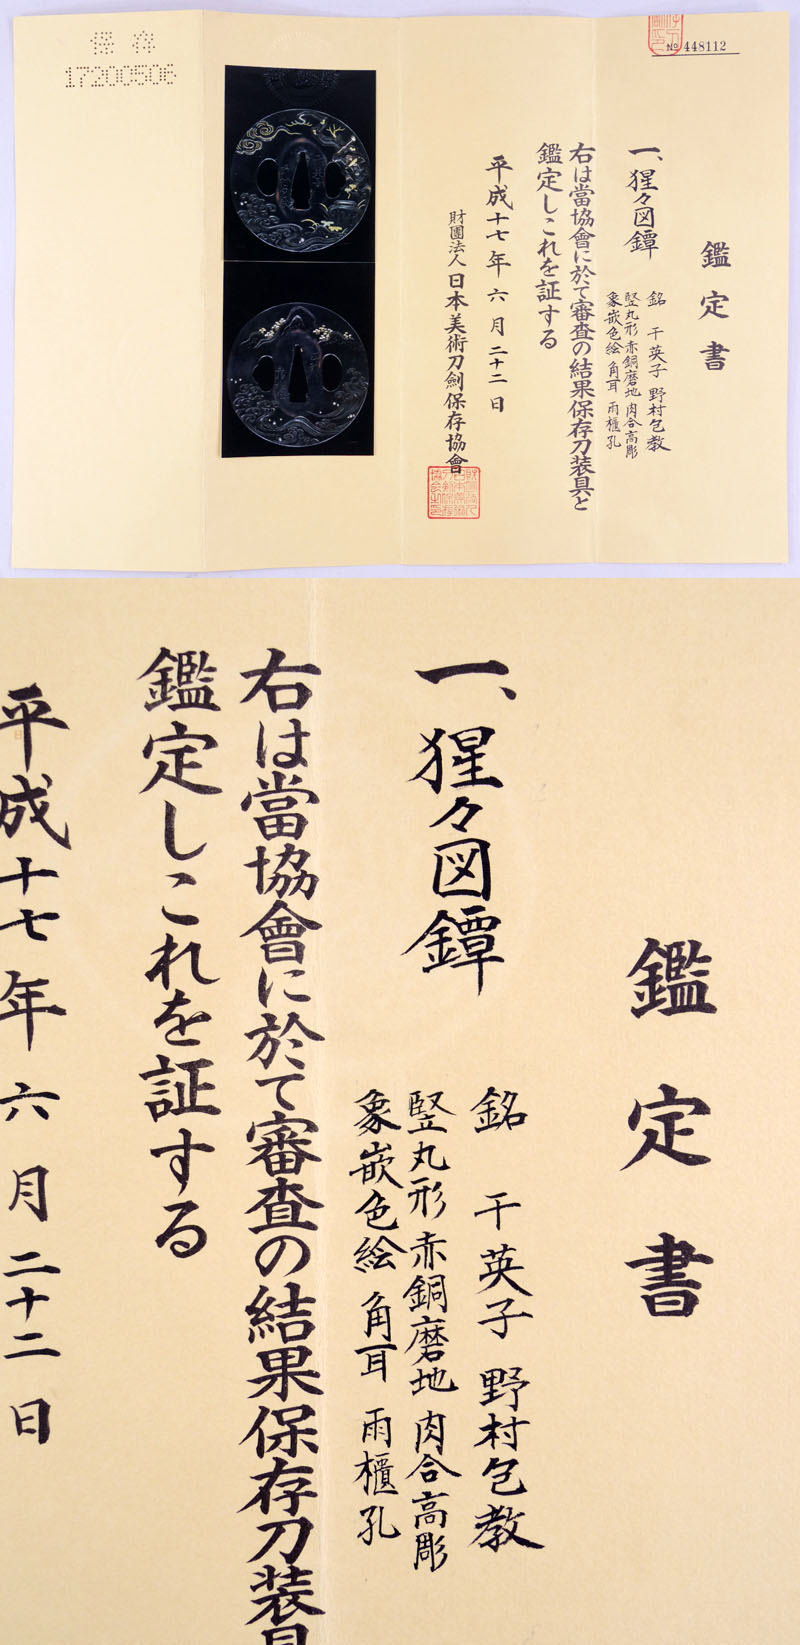 № 448112
鑑定書
一、猩々図鐔
銘 干英子 野村包教
竪丸形 赤銅磨地 肉合高彫
象嵌色絵 角耳 両櫃孔
右は當協會に於て審査の結果保存刀装具と
鑑定しこれを証する
平成十七年 六月 二十二日
財團法人 日本美術刀劍保存協會
保存
17200506
鑑定書
一、猩々図鐔
銘 干英子 野村包教
竪丸形 赤銅磨地 肉合高彫
象嵌色絵 角耳 両櫃孔
右は當協會に於て審査の結果保存刀装具
鑑定しこれを証する
平成十七年 六月 二十二日